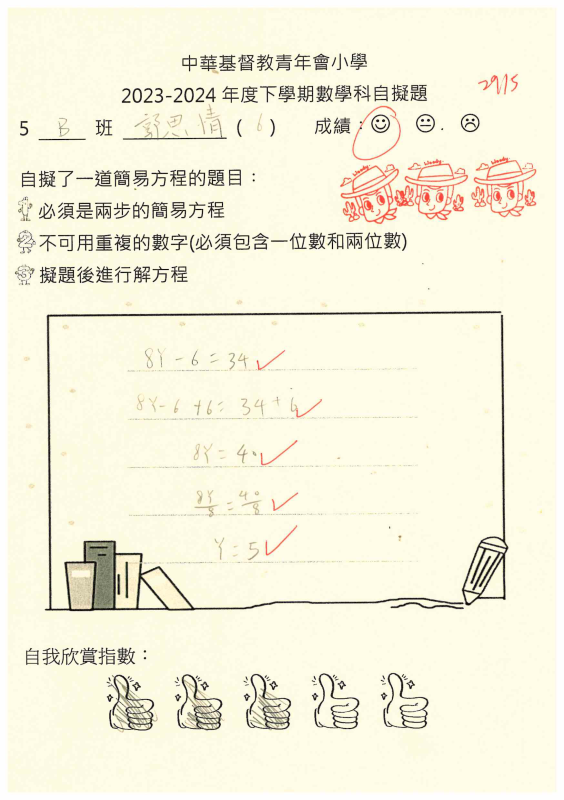 中華基督教青年會小學
2023-2024 年度下學期數學科自擬題
29/5
5 B 班 郭思清 ( 6 ) 成績：
自擬了一道簡易方程的題目：
1 必須是兩步的簡易方程
2 不可用重複的數字(必須包含一位數和兩位數)
3 擬題後進行解方程
8Y - 6 = 34
8Y - 6 + 6 = 34 + 6
8Y = 40
8Y/8 = 40/8
Y = 5
自我欣賞指數：